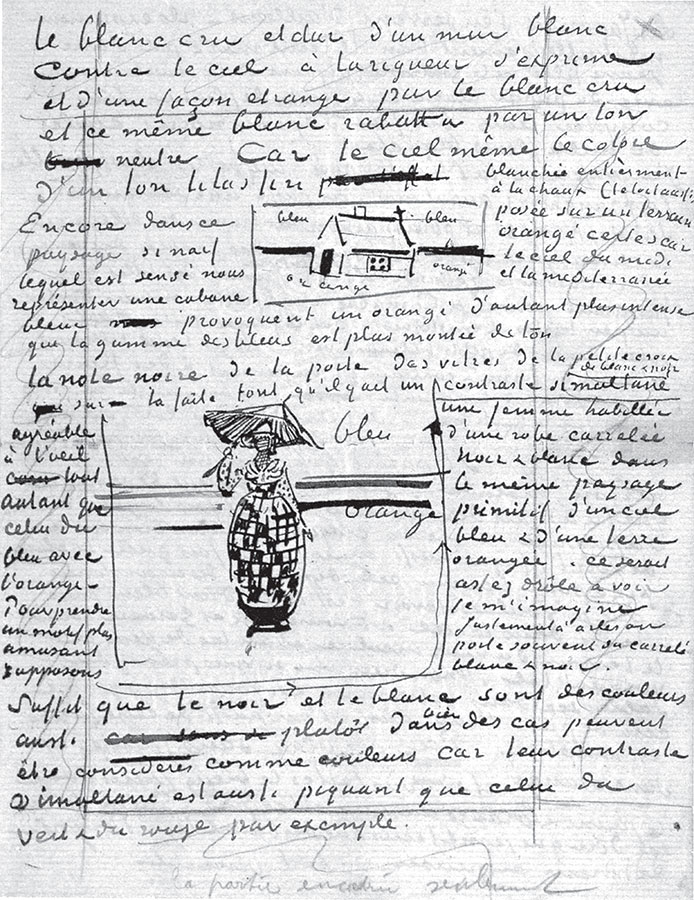 Le blanc cru et dur d'un mur blanc
contre le ciel à la rigueur s'exprime
et d'une façon etrange par le blanc cru
et ce même blanc rabattu par un ton
neutre Car le ciel même le colore
d'un ton lilas fin
Encore dans ce
paysage si naïf
lequel est sensé nous
représenter une cabane
blanchie entièrement
à la chaux (le toit aussi)
posée sur un terrain
orangé certes car
le ciel du midi
et la mediterranée
bleu
bleu
orange
orangé
bleue provoquent un orangé d'autant plus intense
que la gamme des bleus est plus montée de ton
La note noire de la porte des vitres de la petite croix
sur le faîte font qu'il y ait un contraste simultané
de blanc & noir
agréable
à l'oeil
tout
autant que
celui du
bleu avec
l'orangé –
Pour prendre
un motif plus
amusant
supposons
bleu
orange
une femme habillée
d'une robe carrelée
noir & blanc dans
le même paysage
primitif d'un ciel
bleu & d'une terre
orangée. ce serait
assez drôle à voir
je m'imagine
Justement à arles on
porte souvent du carrelé
blanc & noir.
Suffit que le noir et le blanc sont des couleurs
aussi. plutôt dans bien des cas peuvent
être considérés comme couleurs car leur contraste
simultané est aussi piquant que celui du
vert & du rouge par exemple.
la partie encadrée seulement